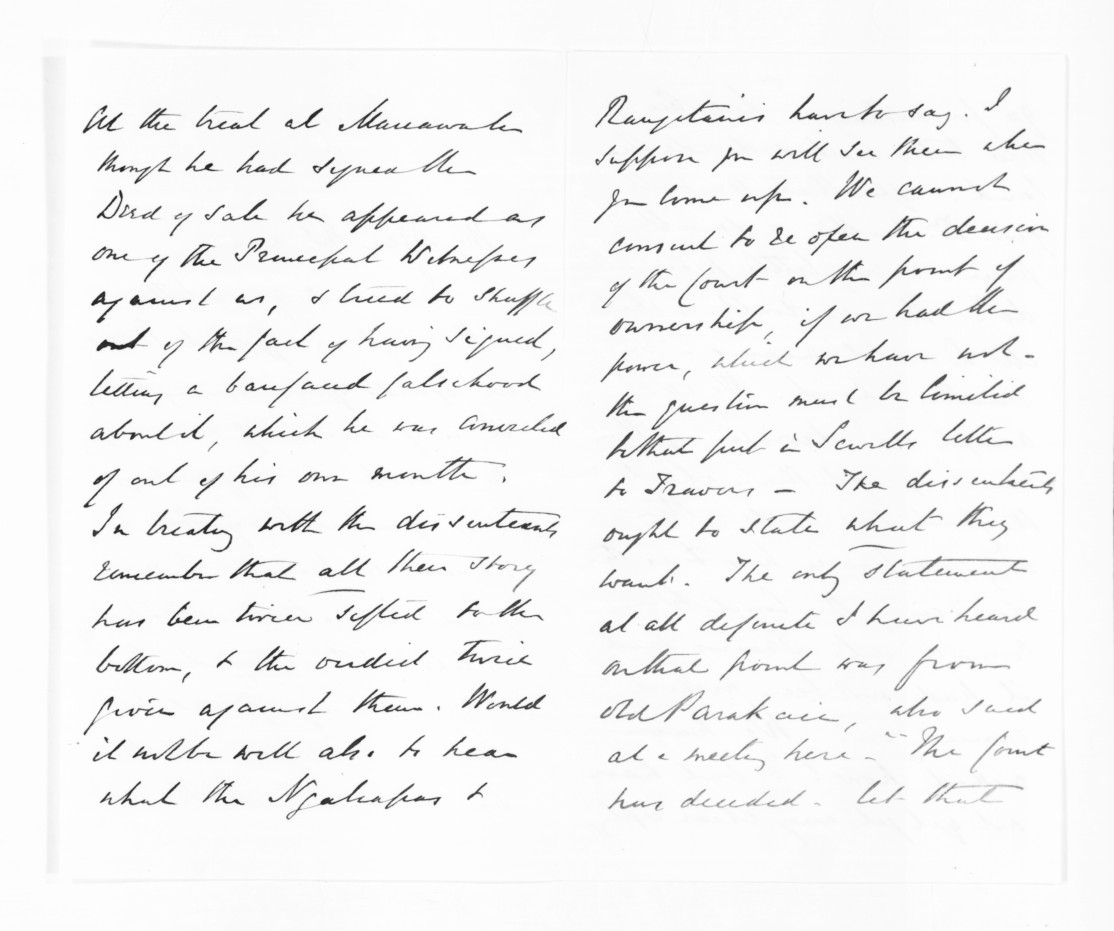 At the trial at Manawatu
though he had signed the
Deed of Sale he appeared as
one of the Principal Witnesses
against us, & tried to shuffle
out of the fact of having signed,
telling a barefaced falsehood
about it, which he was convicted
of out of his own mouth.
In treaty with the dissentients
remember that all their story
has been twice sifted to the
bottom, & the verdict twice
given against them. Would
it not be well also to hear
what the Ngatiapas &
Rangitanis have to say. I
suppose you will see them when
you come up. We cannot
consent to re open the decision
of the Court on the point of
ownership, if we had the
power, which we have not -
the question must be limited
to that put in Sewells letter
to Travers - The dissentients
ought to state what they
want. The only statement
at all definite I have heard
on that point was from
old Parakaia, who said
at a meeting here - "The Court
has decided - let that